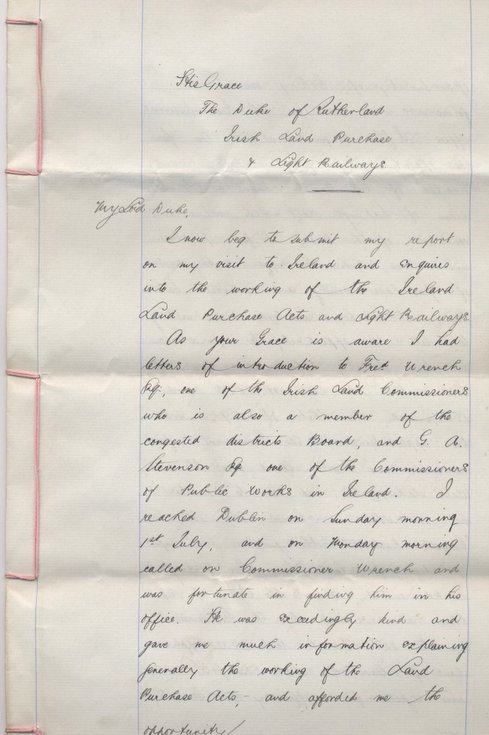 His Grace
The Duke of Rutherland
Irish Land Purchase
& Light Railways
My Lord Duke,
I now beg to submit my report
on my visit to Ireland and enquires
into the working of the Ireland
Land Purchase Acts and Light Railways
As your Grace is aware I had
letters of introduction to Fredk Wrench
Esq, one of the Irish Land Commissioners
who is also a member of the
congested districts Board, and G. A.
Stevenson Esq one of the Commissioners
of Public Works in Ireland. I
reached Dublin on Sunday morning
1st July, and on Monday morning
called on Commissioner Wrench and
was fortunate in finding him in his
office. He was exceedingly kind and
gave me much information explaining
generally the working of the Land
Purchase Acts,- and afforded me the
opportunity/